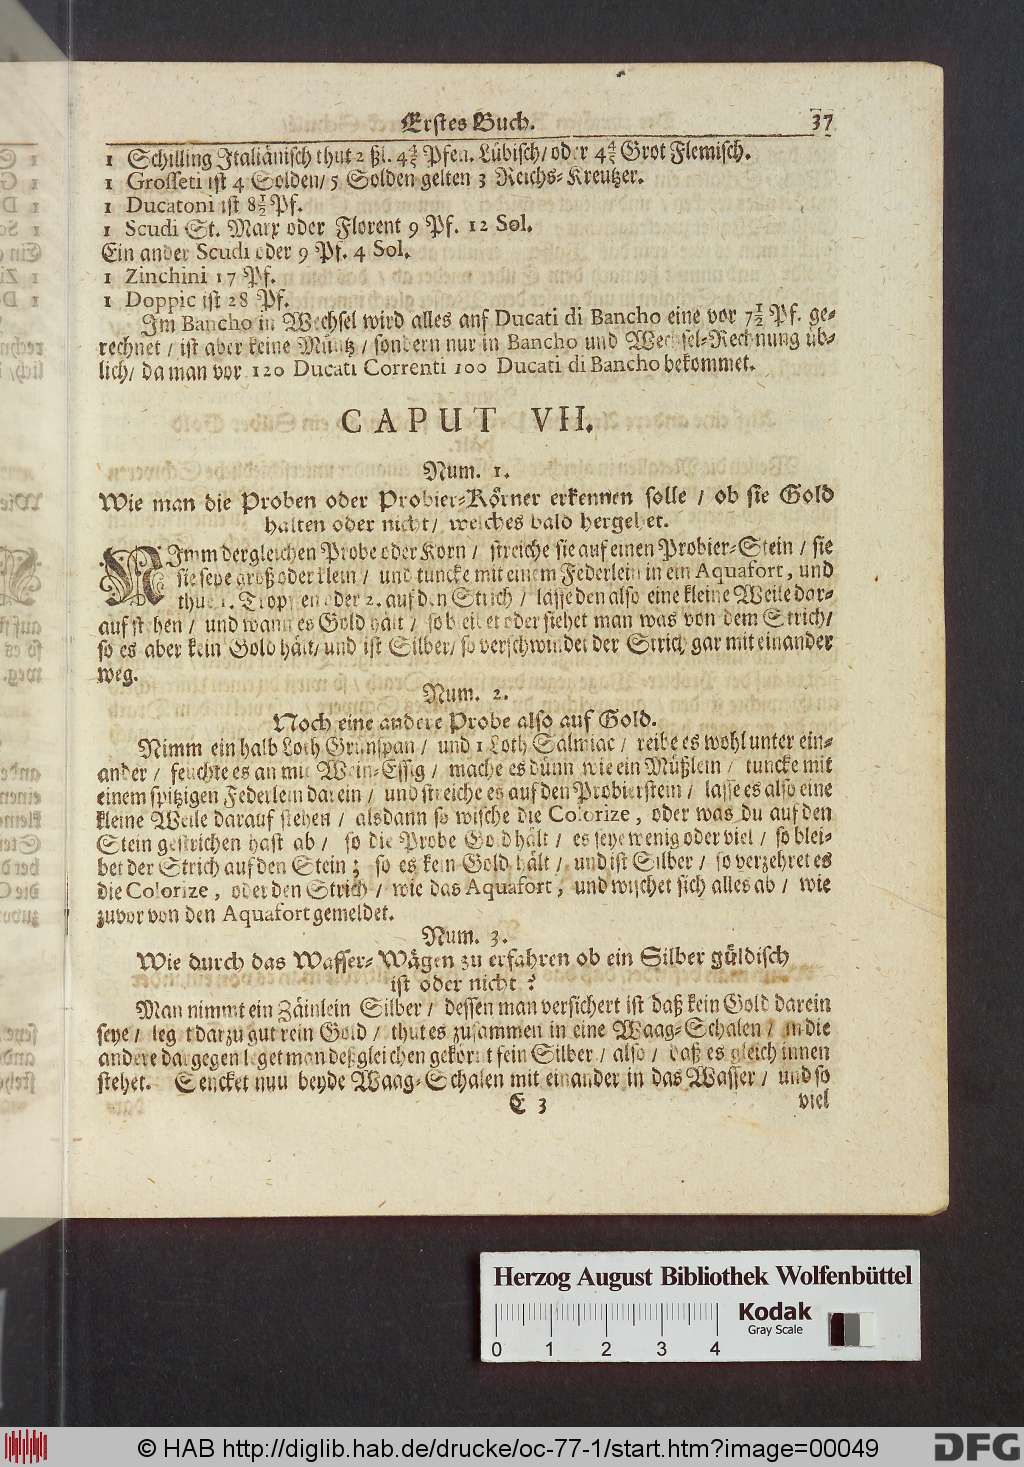 Erstes Buch. 37
1 Schilling Italiänisch thut 2 ßl. 4 4/5 Pfen. Lübisch/ oder 4 4/5 Grot Flemisch.
1 Grosseti ist 4 Solden/ 5 Solden gelten 3 Reichs-Kreutzer.
1 Ducatoni ist 8 1/2 Pf.
1 Scudi St. Marx oder Florent 9 Pf. 12 Sol.
Ein ander Scudi oder 9 Pf. 4 Sol.
1 Zinchini 17 Pf.
1 Doppic ist 28 Pf.
Im Bancho in Wechsel wird alles auf Ducati di Bancho eine vor 7 1/2 Pf. ge-
rechnet / ist aber keine Müntz / sondern nur in Bancho und Wechsel-Rechnung üb-
lich/ da man vor 120 Ducati Correnti 100 Ducati di Bancho bekommet.
CAPUT VII.
Num. 1.
Wie man die Proben oder Probier-Körner erkennen solle / ob sie Gold
halten oder nicht/ welches bald hergehet.
NImm dergleichen Probe oder Korn / streiche sie auf einen Probier-Stein / sie
sie seye groß oder klein / und tuncke mit einem Federlein in ein Aquafort, und
thue 1. Tropffen oder 2. auf den Strich / lasse den also eine kleine Weile dar-
auf stehen / und wann es Gold hält / so bleibet oder siehet man was von dem Strich/
so es aber kein Gold hält/ und ist Silber/ so verschwindet der Strich gar mit einander
weg.
Num. 2.
Noch eine andere Probe also auf Gold.
Nimm ein halb Loth Grünspan / und 1 Loth Salmiac / reibe es wohl unter ein-
ander / feuchte es an mit Wein-Essig / mache es dünn wie ein Müßlein / tuncke mit
einem spitzigen Federlein darein / und streiche es auf den Probierstein / lasse es also eine
kleine Weile darauf stehen / alsdann so wische die Colorize, oder was du auf den
Stein gestrichen hast ab / so die Probe Gold hält / es seye wenig oder viel / so blei-
bet der Strich auf den Stein; so es kein Gold hält / und ist Silber / so verzehret es
die Colorize, oder den Strich / wie das Aquafort, und wischet sich alles ab / wie
zuvor von den Aquafort gemeldet.
Num. 3.
Wie durch das Wasser-Wägen zu erfahren ob ein Silber güldisch
ist oder nicht?
Man nimmt ein Zäinlein Silber / dessen man versichert ist daß kein Gold darein
seye / leget darzu gut rein Gold / thut es zusammen in eine Waag-Schalen / in die
andere dargegen leget man deßgleichen gekörnt fein Silber / also / daß es gleich innen
stehet. Sencket nun beyde Waag-Schalen mit einander in das Wasser / und so
E 3 viel
Herzog August Bibliothek Wolfenbüttel
Kodak
Gray Scale
0 1 2 3 4
© HAB http://diglib.hab.de/drucke/oc-77-1/start.htm?image=00049
DFG